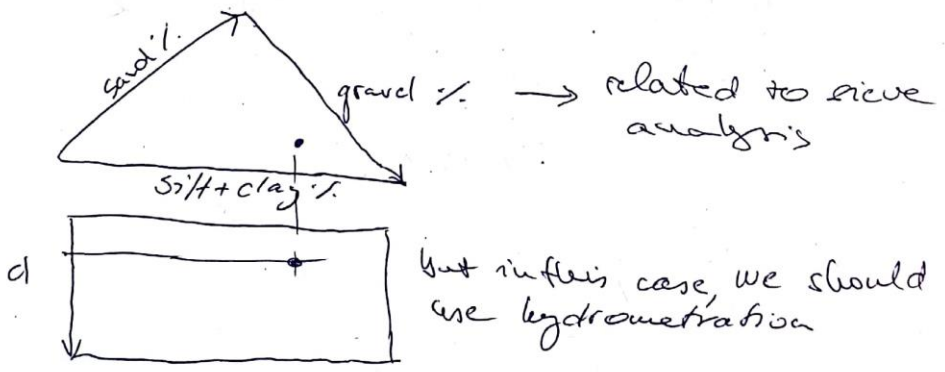 sand %
gravel % → related to sieve
analysis
silt + clay %
d
but in this case, we should
use hydrometration